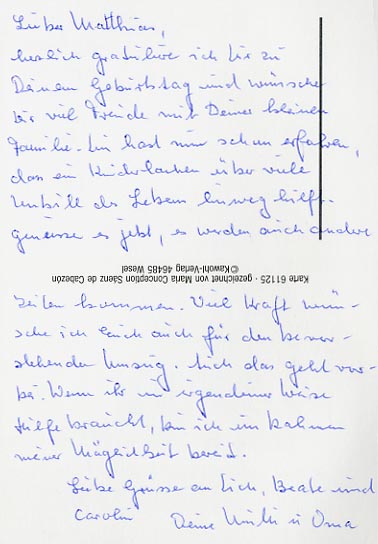 Lieber Matthias,
herzlich gratuliere ich Dir zu
Deinem Geburtstag und wünsche
Dir viel Freude mit Deiner kleinen
Familie. Du hast nun schon erfahren,
dass ein Kinderlachen über viele
Unbill des Lebens hinweg hilft.
geniesse es jetzt, es werden auch andere
Karte 61125 · gezeichnet von Maria Conception Sáenz de Cabezón
©Kawohl-Verlag 46485 Wesel
Zeiten kommen. Viel Kraft wün-
sche ich Euch auch für den bevor-
stehenden Umzug. Auch das geht vor-
bei. Wenn ihr in irgendeiner Weise
Hilfe braucht, bin ich im Rahmen
meiner Möglichkeit bereit.
Liebe Grüsse an Dich, Beate und
Carolin Deine Mutti u Oma